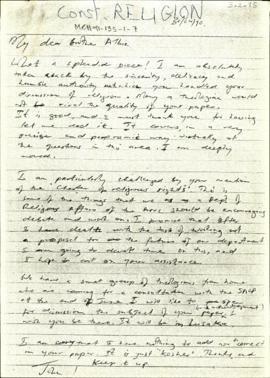 Const. RELIGION
MCH91-135-1-7
My dear Brother Albie
What a splendid piece! I am absolutely
taken aback by the sincerity, delicacy and
humble authority you handled your
discussion of religion. Many a theologian would
not the quality of your paper.
It is good, and I must thank you for having
let me see it. It covers, in a very
and way, virtually all
the questions in this area. I am deeply
moved.
I am particularly challenged by your mention
of the "Charter of religious rights". This is
some of the things that we as a Dept of
Religious Affairs of the ANC should be encouraging
debate and work on. I that after
I have dealt with the task of working out
a proposal for the future of our department
I am going to devote time on this, and
I hope to on your assistance.
We have a small group of theologians from home
who are coming for a consultation with the
at the end of June. I will like to
for discussion the subject of your paper. I
wish you be there. It will be
I am I have nothing to add or "correct"
on your paper. It is just "kosher". Thanks and
Keep it up.
John!